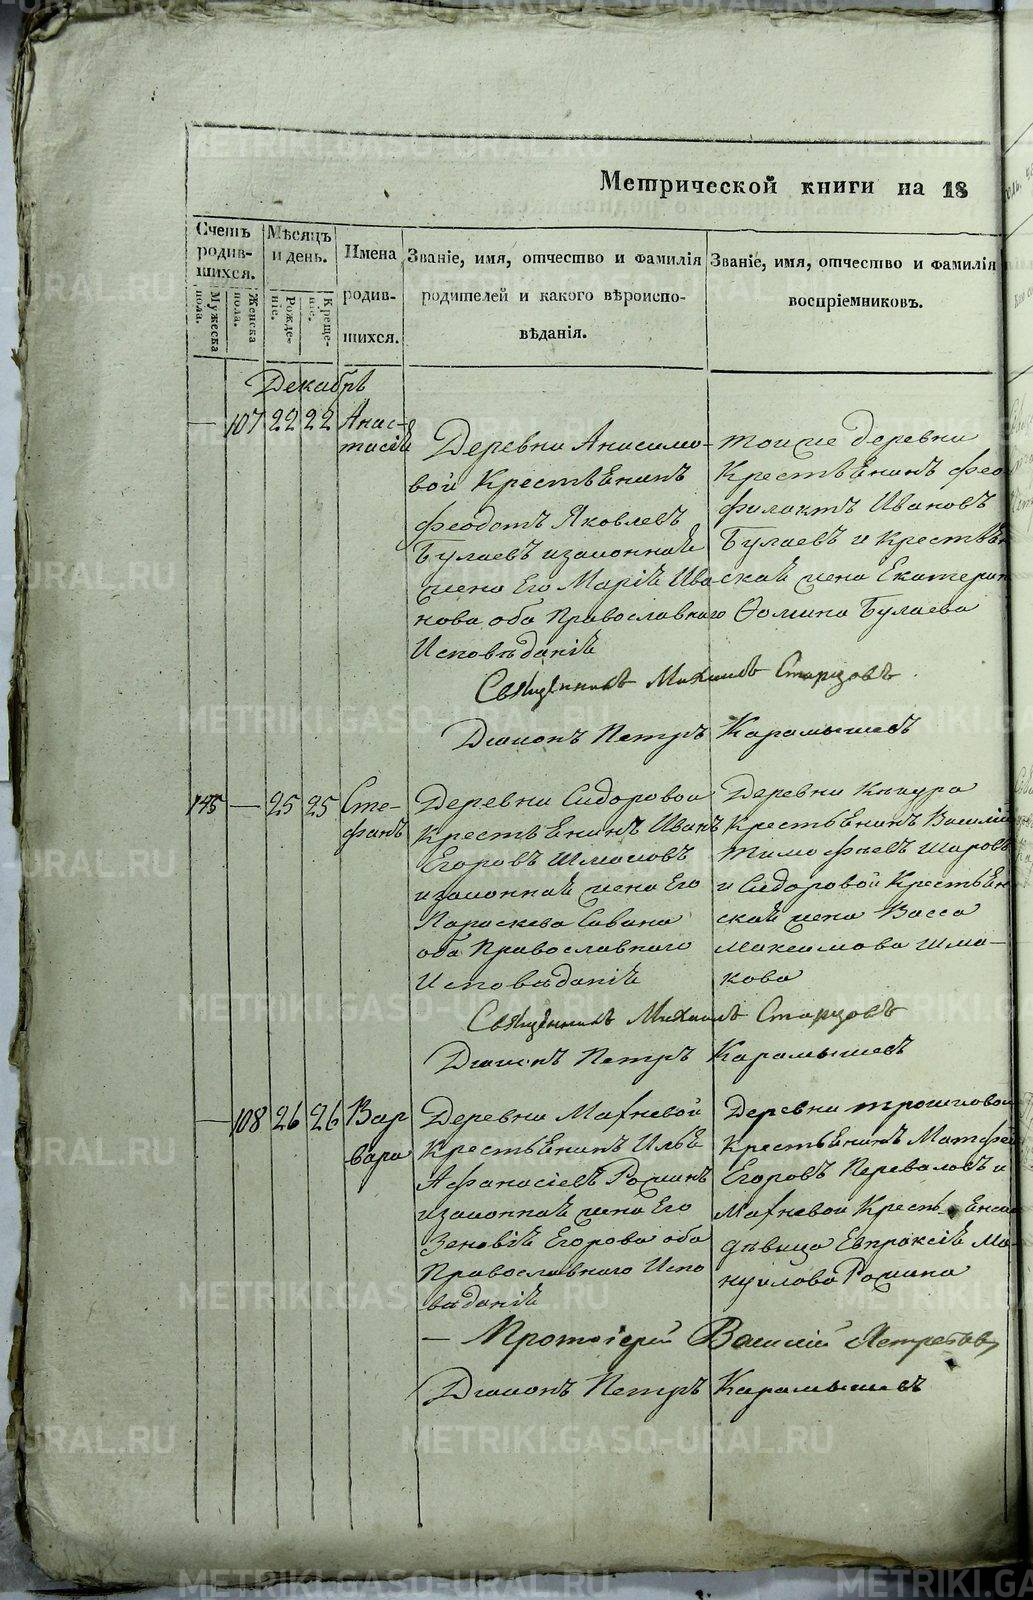 Метрической книги на 18
Счетъ родившихся.
Мужеска пола.
Женска пола.
Мѣсяцъ и день.
Рождение.
Крещение.
Имена родившихся.
Званіе, имя, отчество и фамилія
родителей и какого вѣроиспо-
вѣданія.
Званіе, имя, отчество и фамилія
воспріемниковъ.
Декабрѣ
— 107 22 22
Анас-
тасія
Деревни Анисимо-
вой Крестьѣнинъ
Феодотъ Яковлевъ
Булаевъ изаконнаѣ
жена Его Маріѣ Ива
нова оба Православнаго
Исповѣданіѣ
тоиже деревни
Крестьѣнинъ Фео-
филактъ Ивановъ
Булаевъ и Крестьѣн
скаѣ жена Екатерин
Ѳомина Булаева
Священникъ Михаилъ Старцовъ
Дьяконъ Петръ Карамышевъ
145 — 25 25
Сте-
фанъ
Деревни Сидоровой
Крестьѣнинъ Иванъ
Егоровъ Шмаковъ
изаконнаѣ жена Его
Параскева Савина
оба Православнаго
Исповѣданіѣ
Деревни
Крестьѣнинъ Василій
Тимофѣевъ Шаровъ
и Сидоровой Крестьѣн
скаѣ жена Васса
Максимова Шма-
кова
Священникъ Михаилъ Старцовъ
Дьяконъ Петръ Карамышевъ
— 108 26 26
Вар
вара
Деревни Махневой
Крестьѣнинъ Ильѣ
Афанасіевъ Роминъ
изаконнаѣ жена Его
Зеновіѣ Егорова оба
Православнаго Испо
ведоніѣ
Деревни Трошковой
Крестьѣнинъ Матфей
Егоровъ Переваловъ и
Махневой
дѣвица Евпраксіѣ Ма-
нуилова Ромина
— Протоіерей Василій Ястребовъ
Дьяконъ Петръ Карамышевъ
METRIKI.GASO-URAL.RU